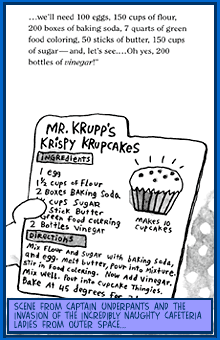 ...we'll need 100 eggs, 150 cups of flour,
200 boxes of baking soda, 7 quarts of green
food coloring, 50 sticks of butter, 150 cups
of sugar—and, let's see....Oh yes, 200
bottles of vinegar!"
MR. KRUPP'S
KRISPY KRUPCAKES
INGREDIENTS
1 egg
1½ cups of Flour
2 Boxes Baking Soda
cups Sugar
Stick Butter
Green Food Coloring
2 Bottles Vinegar
MAKES 10
CUPCAKES
DIRECTIONS
Mix Flour and Sugar with baking soda,
and egg. Melt butter, Pour into mixture.
Stir in food coloring. Now add vinegar,
Mix well. Pour into cupcake Thingies.
Bake At 45 degrees for
SCENE FROM CAPTAIN UNDERPANTS AND THE
INVASION OF THE INCREDIBLY NAUGHTY CAFETERIA
LADIES FROM OUTER SPACE...